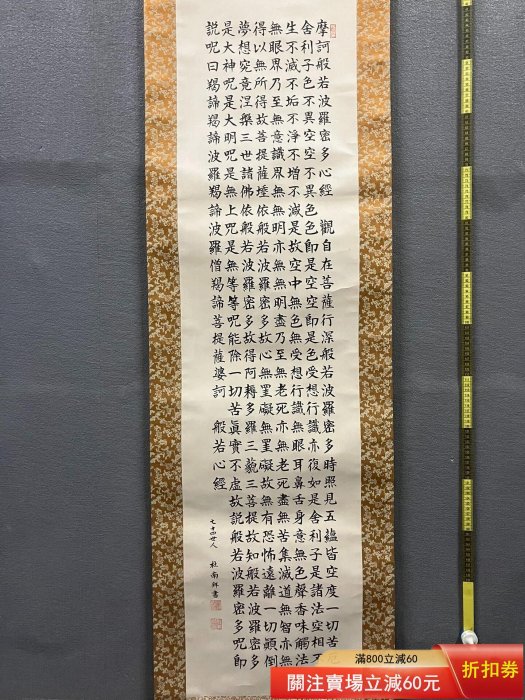 摩訶般若波羅密多心經 觀自在菩薩行深般若波羅密多時照見五蘊皆空度一切苦厄
舍利子色不異空空不異色色即是空空即是色受想行識亦復如是舍利子是諸法空相不
生不滅不垢不淨不增不減是故空中無色無受想行識無眼耳鼻舌身意無色聲香味觸法
無眼界乃至無意識界無無明亦無無明盡乃至無老死亦無老死盡無苦集滅道無智亦無
得以無所得故菩提薩埵依般若波羅密多故心無罣礙無罣礙故無有恐怖遠離一切顛倒
夢想究竟涅槃三世諸佛依般若波羅密多故得阿耨多羅三藐三菩提故知般若波羅密多
是大神呪是大明呪是無上呪是無等等呪能除一切苦眞實不虛故説般若波羅密多呪即
説呪曰羯諦羯諦波羅羯諦波羅僧羯諦菩提薩婆訶 般若心經
七十四
書
滿800立減60
關注賣場立減60元
折扣券